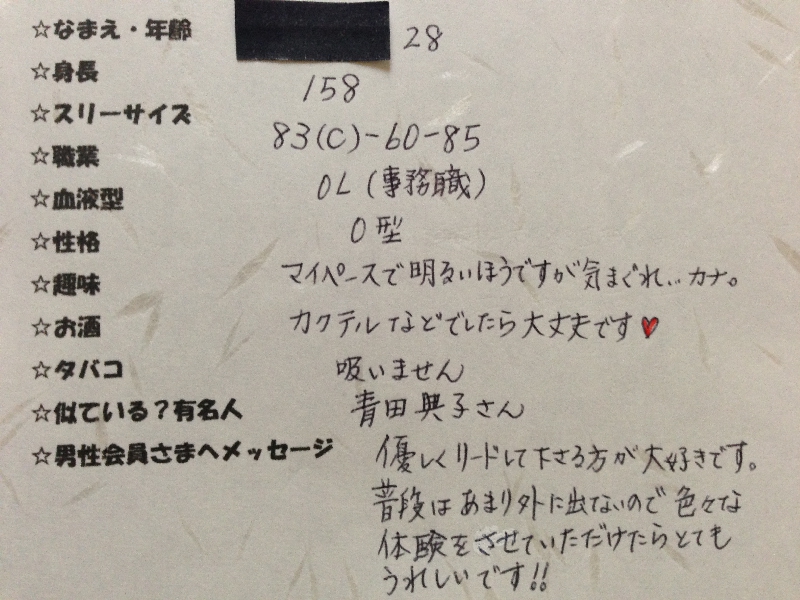 ☆なまえ・年齢 28
☆身長 158
☆スリーサイズ 83(C)-60-85
☆職業 OL(事務職)
☆血液型 O型
☆性格 マイペースで明るいほうですが気まぐれ…カナ。
☆趣味
☆お酒 カクテルなどでしたら大丈夫です♥
☆タバコ 吸いません
☆似ている?有名人 青田典子さん
☆男性会員さまへメッセージ 優しくリードして下さる方が大好きです。
普段はあまり外に出ないので色々な
体験をさせていただけたらとても
うれしいです!!